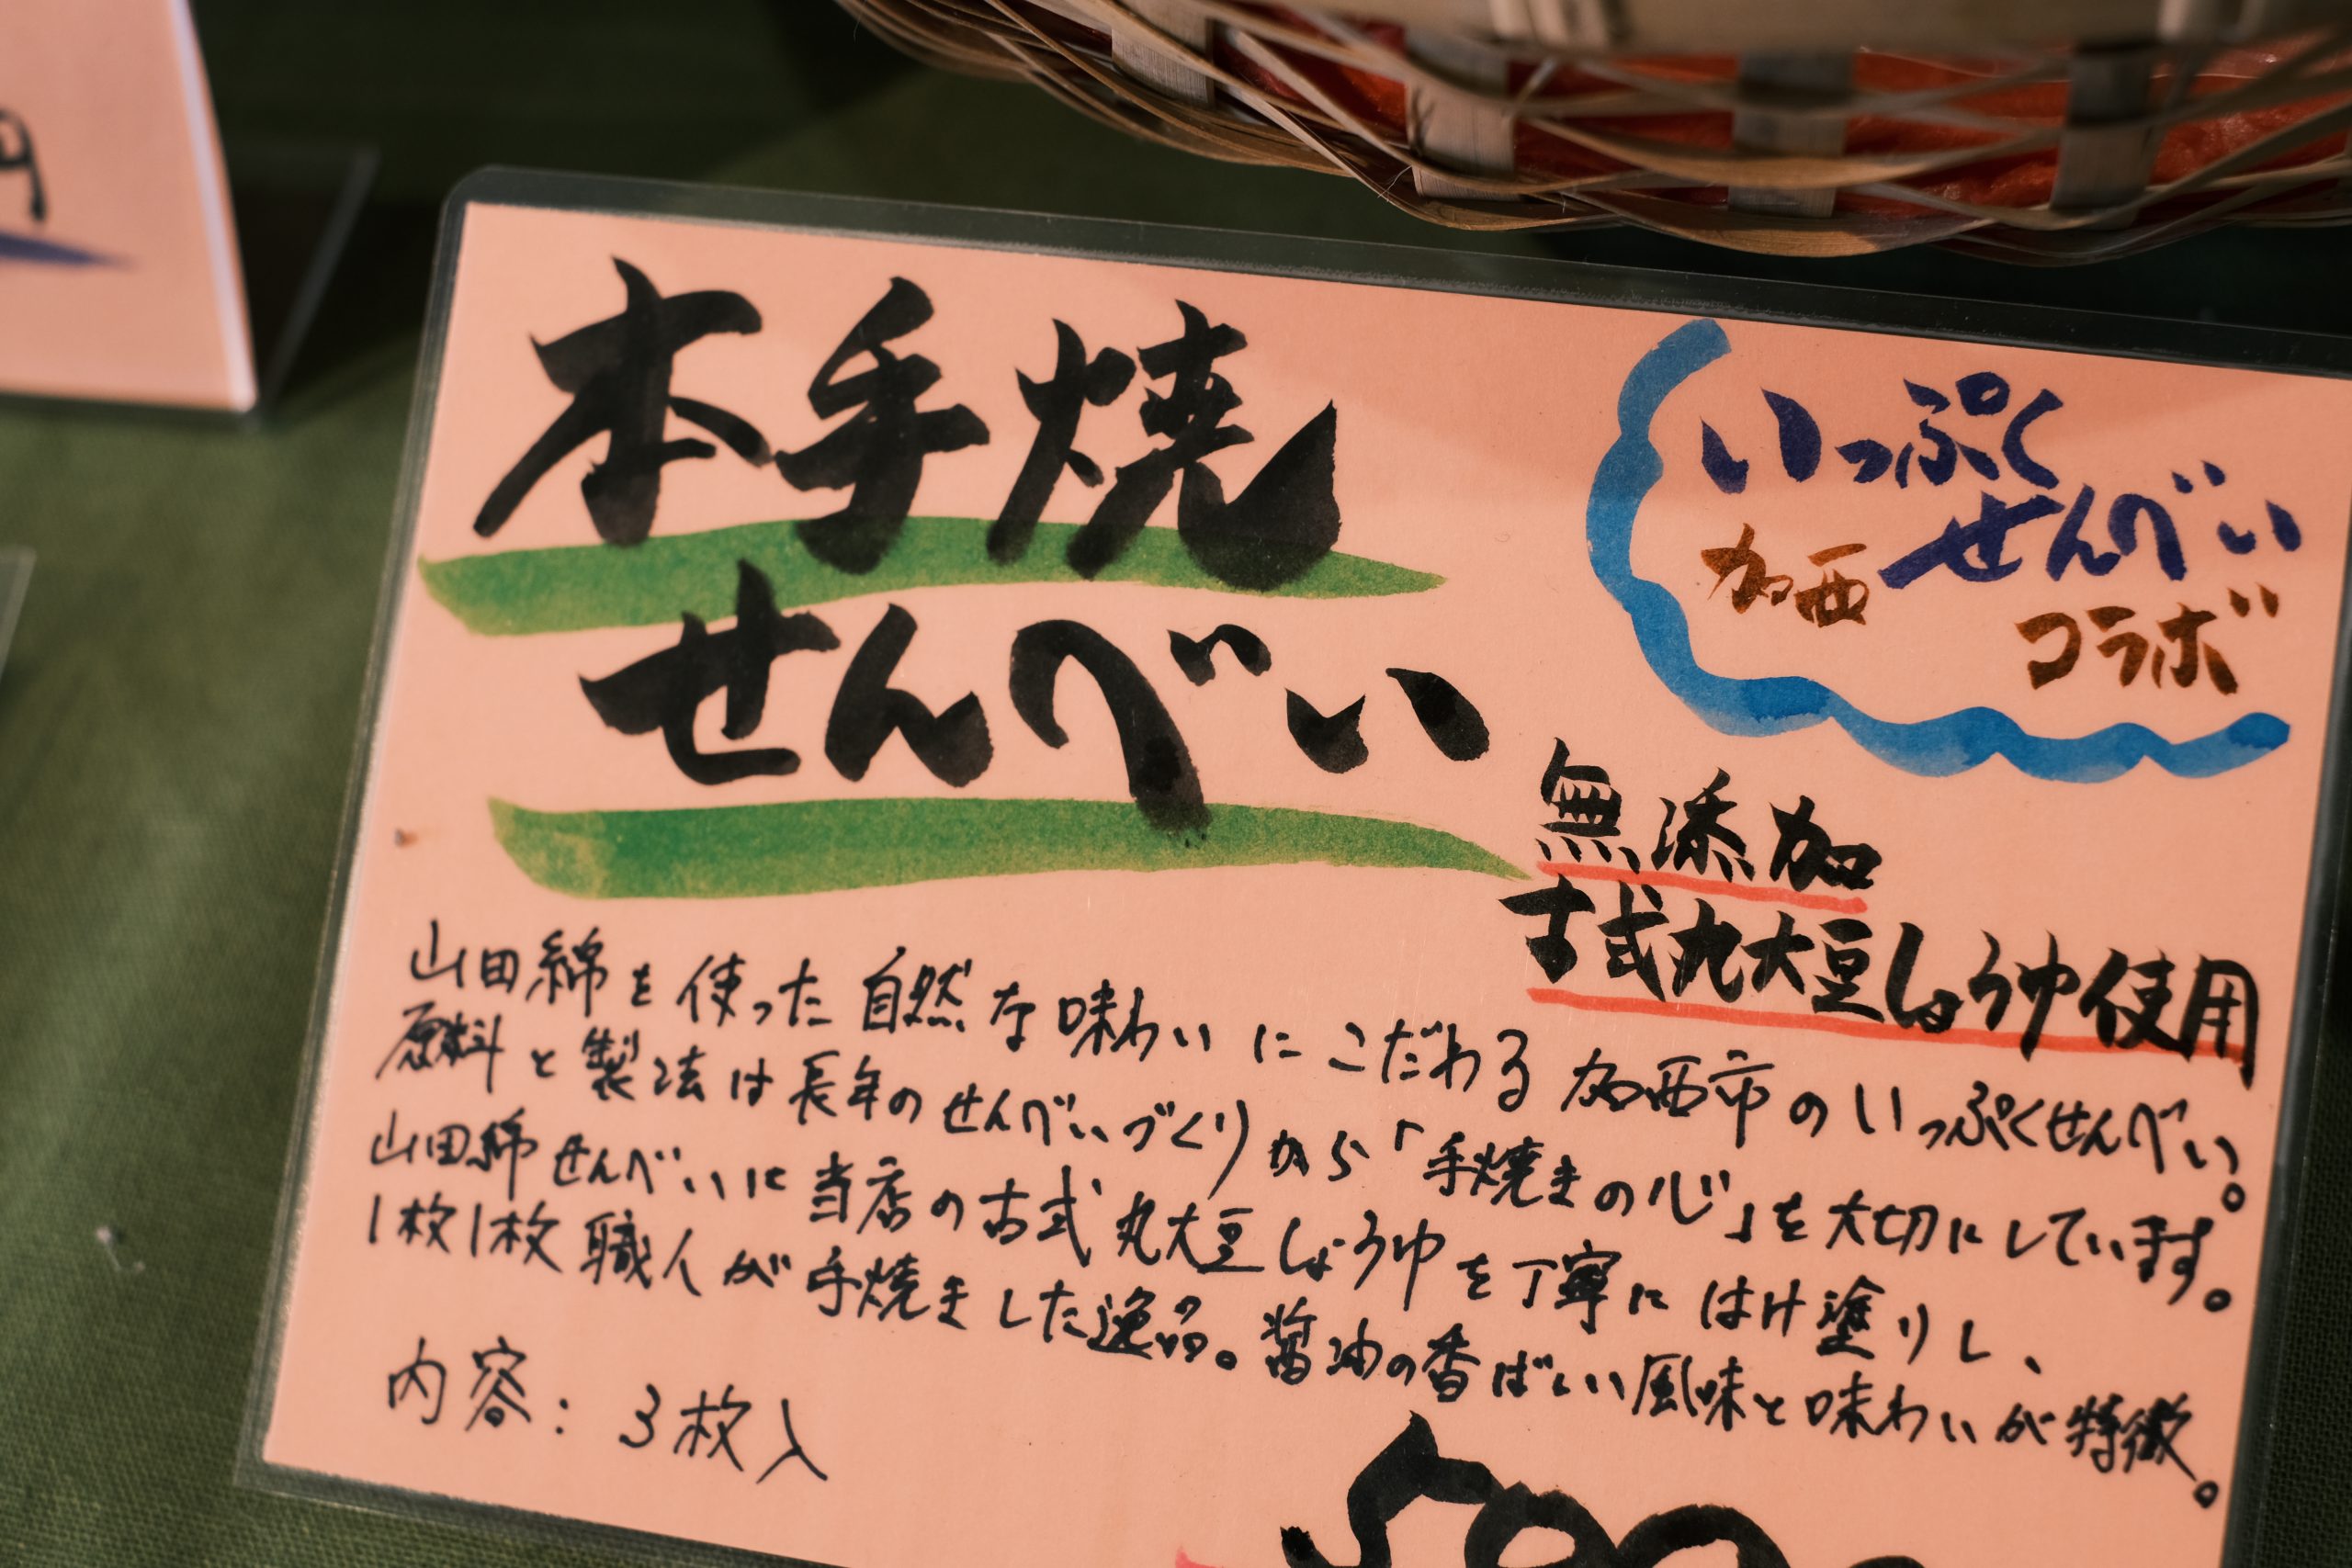 本手焼
せんべい
いっぷく
せんべい
加西
コラボ
無添加
古式丸大豆しょうゆ使用
山田錦を使った自然な味わいにこだわる加西市のいっぷくせんべい。
原料と製法は長年のせんべいづくりから「手焼きの心」を大切にしています。
山田錦せんべいに当店の古式丸大豆しょうゆを丁寧にはけ塗りし、
1枚1枚職人が手焼きした逸品。醤油の香ばしい風味と味わいが特徴。
内容：3枚入